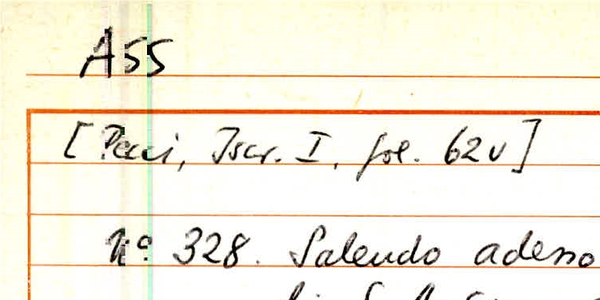 A55
[Pecci, Iscr. I, fol. 62v]
Nº 328. Salendo adesso